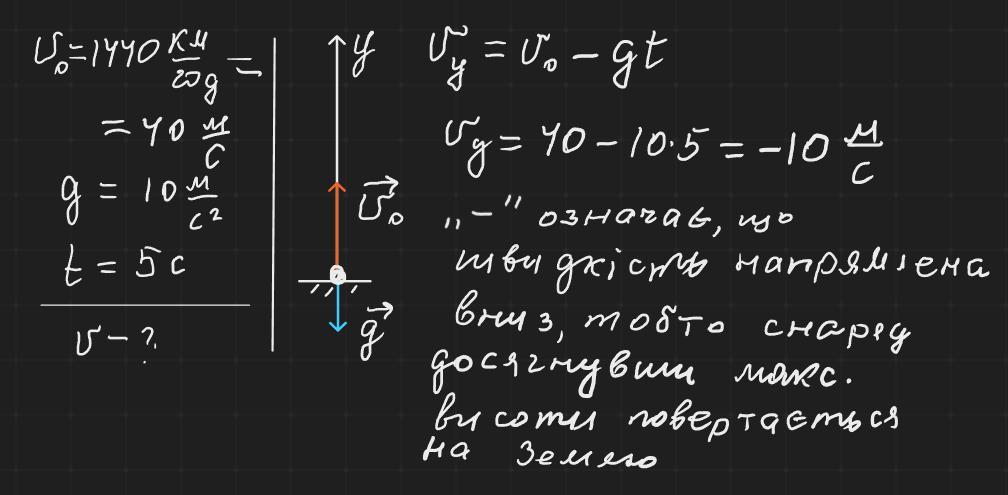 v₀ = 1440 км/год =
= 40 м/с
g = 10 м/с²
t = 5 с
v - ?
y
v₀
g
vy = v₀ - gt
vy = 40 - 10·5 = -10 м/с
„-" означає, що
швидкість напрямлена
вниз, тобто снаряд
досягнувши макс.
висоти повертається
на Землю